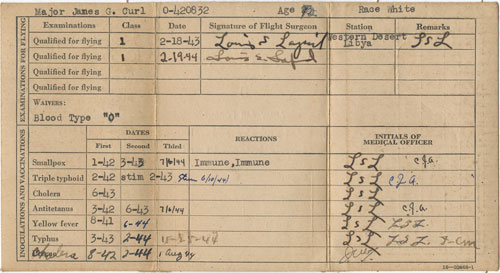 Major James G. Curl O-420832 Age Race White
EXAMINATIONS FOR FLYING
Examinations Class Date Signature of Flight Surgeon Station Remarks
Qualified for flying 1 2-18-43 Louis S Western Desert Libya LSL
Qualified for flying 1 2-19-44 Louis S
Qualified for flying
Qualified for flying
WAIVERS:
Blood Type "O"
INOCULATIONS AND VACCINATIONS
DATES REACTIONS INITIALS OF MEDICAL OFFICER
First Second Third
Smallpox 1-42 3-43 7/6/44 Immune, Immune LSL C.J.A.
Triple typhoid 2-42 stim 2-43 Stim 6/10/44 LSL C.J.A.
Cholera 6-43 LSL
Antitetanus 3-42 6-43 7/6/44 LSL C.J.A.
Yellow fever 8-41 6-44 LSL LSL
Typhus 3-43 2-44 LSL LSL
Cholera 8-42 2-44 1 Aug 44